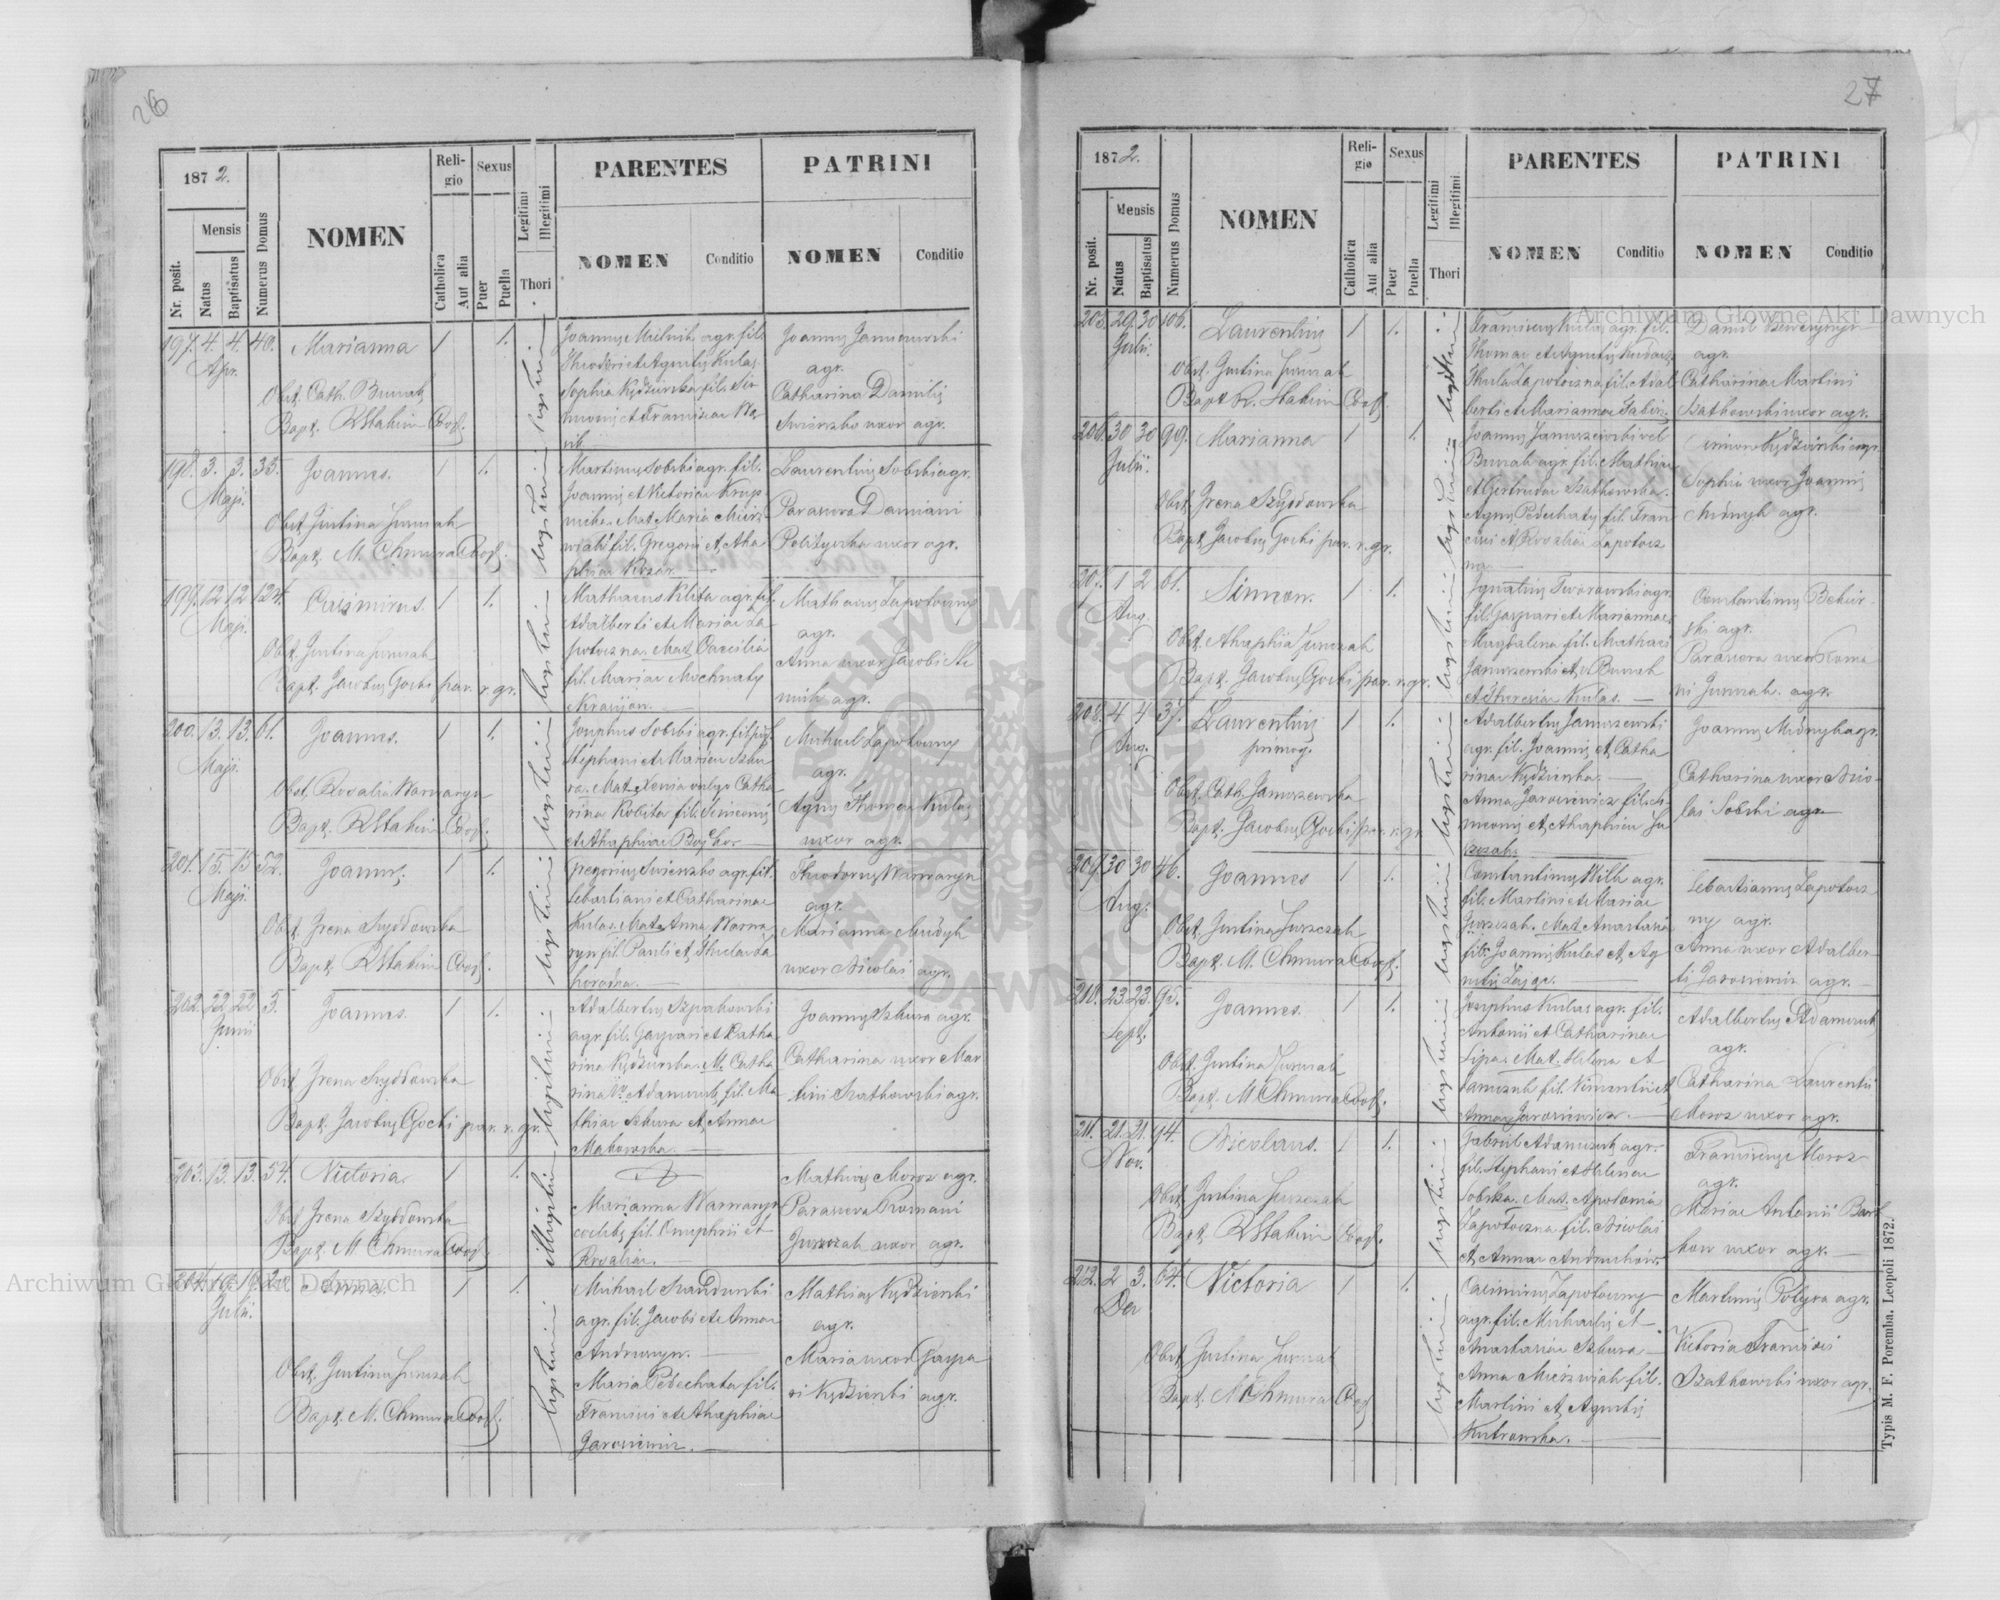 26
1872.
Nr. posit.
Mensis
Natus
Baptisatus
Numerus Domus
NOMEN
Reli-
gio
Catholica
Aut alia
Sexus
Puer
Puella
Legitimi
Illegitimi
Thori
PARENTES
NOMEN
Conditio
PATRINI
NOMEN
Conditio
197. 4. 4. 40. Marianna 1 1.
Apr.
Obst. Cath. Burnat
Bapt. R Stakin Coop.
legitimi
Joannes Mielnik agr. fil.
Theodori et Agnetis Kulas
Sophia Kędzierska fil. Si-
Joannes Januszewski
agr.
Catharina Danilis
Swierszko uxor agr.
198. 3. 3. 35. Joannes. 1 1.
Maji.
Obst. Justina Jurczak
Bapt. M. Chmura Coop.
legitimi
Martinus Sobski agr. fil.
Joannis et Victoriae Krup-
nicka. Mat. Maria Mierz-
wiak fil. Gregorii et Aha-
phiae Kozar.
Laurentius Sobski agr.
Parascva Damiani
uxor agr.
199. 12 12 124. Casimirus. 1 1.
Maji.
Obst. Justina Jurczak
Bapt. Jacobus Gocki par. r. gr.
legitimi
Mathaeus Klita agr. fil.
Adalberti et Mariae Za-
potoczna. Mat. Caecilia
fil. Mariae Mochnaty
Mathaeus Zapotoczny
agr.
Anna uxor Jacobi
agr.
200. 13. 13. 61. Joannes. 1 1.
Maji.
Obst. Rosalia Warwaryn
Bapt. R Stakin Coop.
legitimi
Josephus Sobski agr. fil.
Stephani et Mariae Szku-
ra. Mat. Xenia vulgo Catha-
rina Robita fil. Simeonis
et Ahaphiae
Michael Zapotoczny
agr.
Agnes Thomae Kulas
uxor agr.
201. 15. 15 52. Joannes. 1 1.
Maji.
Obst. Irena Szydłowska
Bapt. R Stakin Coop.
legitimi
Gregorius Swierszko agr. fil.
Sebastiani et Catharinae
Kulas. Mat. Anna Warwa-
ryn fil. Pauli et Theclae Za-
horodna.
Theodorus Warwaryn
agr.
Marianna
uxor Nicolai agr.
202. 22 22 3. Joannes. 1 1.
Junii
Obst. Irena Szydłowska
Bapt. Jacobus Gocki par. r. gr.
legitimi
Adalbertus Szpakowski
agr. fil. Gaspari et Katha-
rina Kędzierska. M. Catha-
rina Adamczuk fil. Ma-
thiae Szkura et Annae
Makowska.
Joannes Szkura agr.
Catharina uxor Mar-
tini Szatkowski agr.
203. 13. 13. 54. Victoria. 1 1.
Obst. Irena Szydłowska
Bapt. M Chmura Coop.
illegitimi
Marianna Warwaryn
coelebs fil. Onuphrii et
Rosaliae.
Mathias Moroz agr.
Parascva Romani
Jurczak uxor agr.
204. 19. 19. 2. Anna. 1 1.
Julii.
Obst. Justina Jurczak
Bapt. M. Chmura Coop.
legitimi
Michael
agr. fil. Jacobi et Annae
Maria Pedechata fil.
Francisci et Ahaphiae
Jarosiewicz.
Mathias Kędzierski
agr.
Maria uxor Gaspa-
ri Kędzierski agr.
27
1872.
Nr. posit.
Mensis
Natus
Baptisatus
Numerus Domus
NOMEN
Reli-
gio
Catholica
Aut alia
Sexus
Puer
Puella
Legitimi
Illegitimi
Thori
PARENTES
NOMEN
Conditio
PATRINI
NOMEN
Conditio
205. 29. 30 106. Laurentius 1 1.
Julii.
Obst. Justina Jurczak
Bapt. R. Stakin Coop.
legitimi
Franciscus Kulas agr. fil.
Thomae et Agnetis
Thecla Zapotoczna fil. Adal-
berti et Mariannae
Daniel
agr.
Catharina Martini
Szatkowski uxor agr.
206. 30 30 99. Marianna 1 1.
Julii.
Obst. Irena Szydłowska
Bapt. Jacobus Gocki par. r. gr.
legitimi
Joannes Januszewski vel
Burnat agr. fil. Mathiae
et Gertrudae Szatkowska.
Agnes Pedechaty fil. Fran-
cisci et Rosaliae Zapotocz-
na.
Simeon Kędzierski agr.
Sophia uxor Joannis
agr.
207. 1 2 61. Simeon. 1 1.
Aug.
Obst. Ahaphia Jurczak
Bapt. Jacobus Gocki par. r. gr.
legitimi
Ignatius Tworowski agr.
fil. Gaspari et Mariannae
Magdalena fil. Mathaei
Januszewski et Burnat
et Theresiae Kulas.
Constantinus Bekier-
ski agr.
Parascva uxor Roma-
ni Jurczak. agr.
208. 4 4 37. Laurentius 1 1.
primog.
Aug.
Obst. Cath. Januszewska
Bapt. Jacobus Gocki par. r. gr.
legitimi
Adalbertus Januszewski
agr. fil. Joannis et Catha-
rinae Kędzierska.
Anna Jarosiewicz fil. Si-
meonis et Ahaphiae Ju-
rczak.
Joannes agr.
Catharina uxor Nico-
lai Sobski agr.
209. 30 30 46. Joannes 1 1.
Aug.
Obst. Justina Jurczak
Bapt. M. Chmura Coop.
legitimi
Constantinus Wilk agr.
fil. Martini et Mariae
Jurczak. Mat. Anastasia
fil. Joannis Kulas et Ag-
netis Zając.
Sebastianus Zapotocz-
ny agr.
Anna uxor Adalber-
ti Jarosiewicz agr.
210. 23. 23. 95. Joannes. 1 1.
Sept.
Obst. Justina Jurczak
Bapt. M Chmura Coop.
legitimi
Josephus Kulas agr. fil.
Antonii et Catharinae
Lipa. Mat. Helena
fil. Vincentii et
Annae Jarosiewicz.
Adalbertus Adamczuk
agr.
Catharina Laurentii
Moroz uxor agr.
211. 21. 21. 94. Nicolaus. 1 1.
Nov.
Obst. Justina Jurczak
Bapt. R Stakin Coop.
legitimi
Gabriel Adamczuk agr.
fil. Stephani et Helenae
Sobska. Mat. Apolonia
Zapotoczna fil. Nicolai
et Annae
Franciscus Moroz
agr.
Mariae Antonii
uxor agr.
212. 2 3. 64. Victoria 1 1.
Dec
Obst. Justina Jurczak
Bapt. M Chmura Coop
legitimi
Casimirus Zapotoczny
agr. fil. Michaelis et
Anastasiae Szkura
Anna Mierzwiak fil.
Martini et Agnetis
Kutrowska.
Martinus Połyra agr.
Victoria Francisci
Szatkowski uxor agr.
Typis M. F. Poremba. Leopoli 1872.
Archiwum Główne Akt Dawnych
Archiwum Główne Akt Dawnych
ARCHIWUM GŁÓWNE AKT DAWNYCH